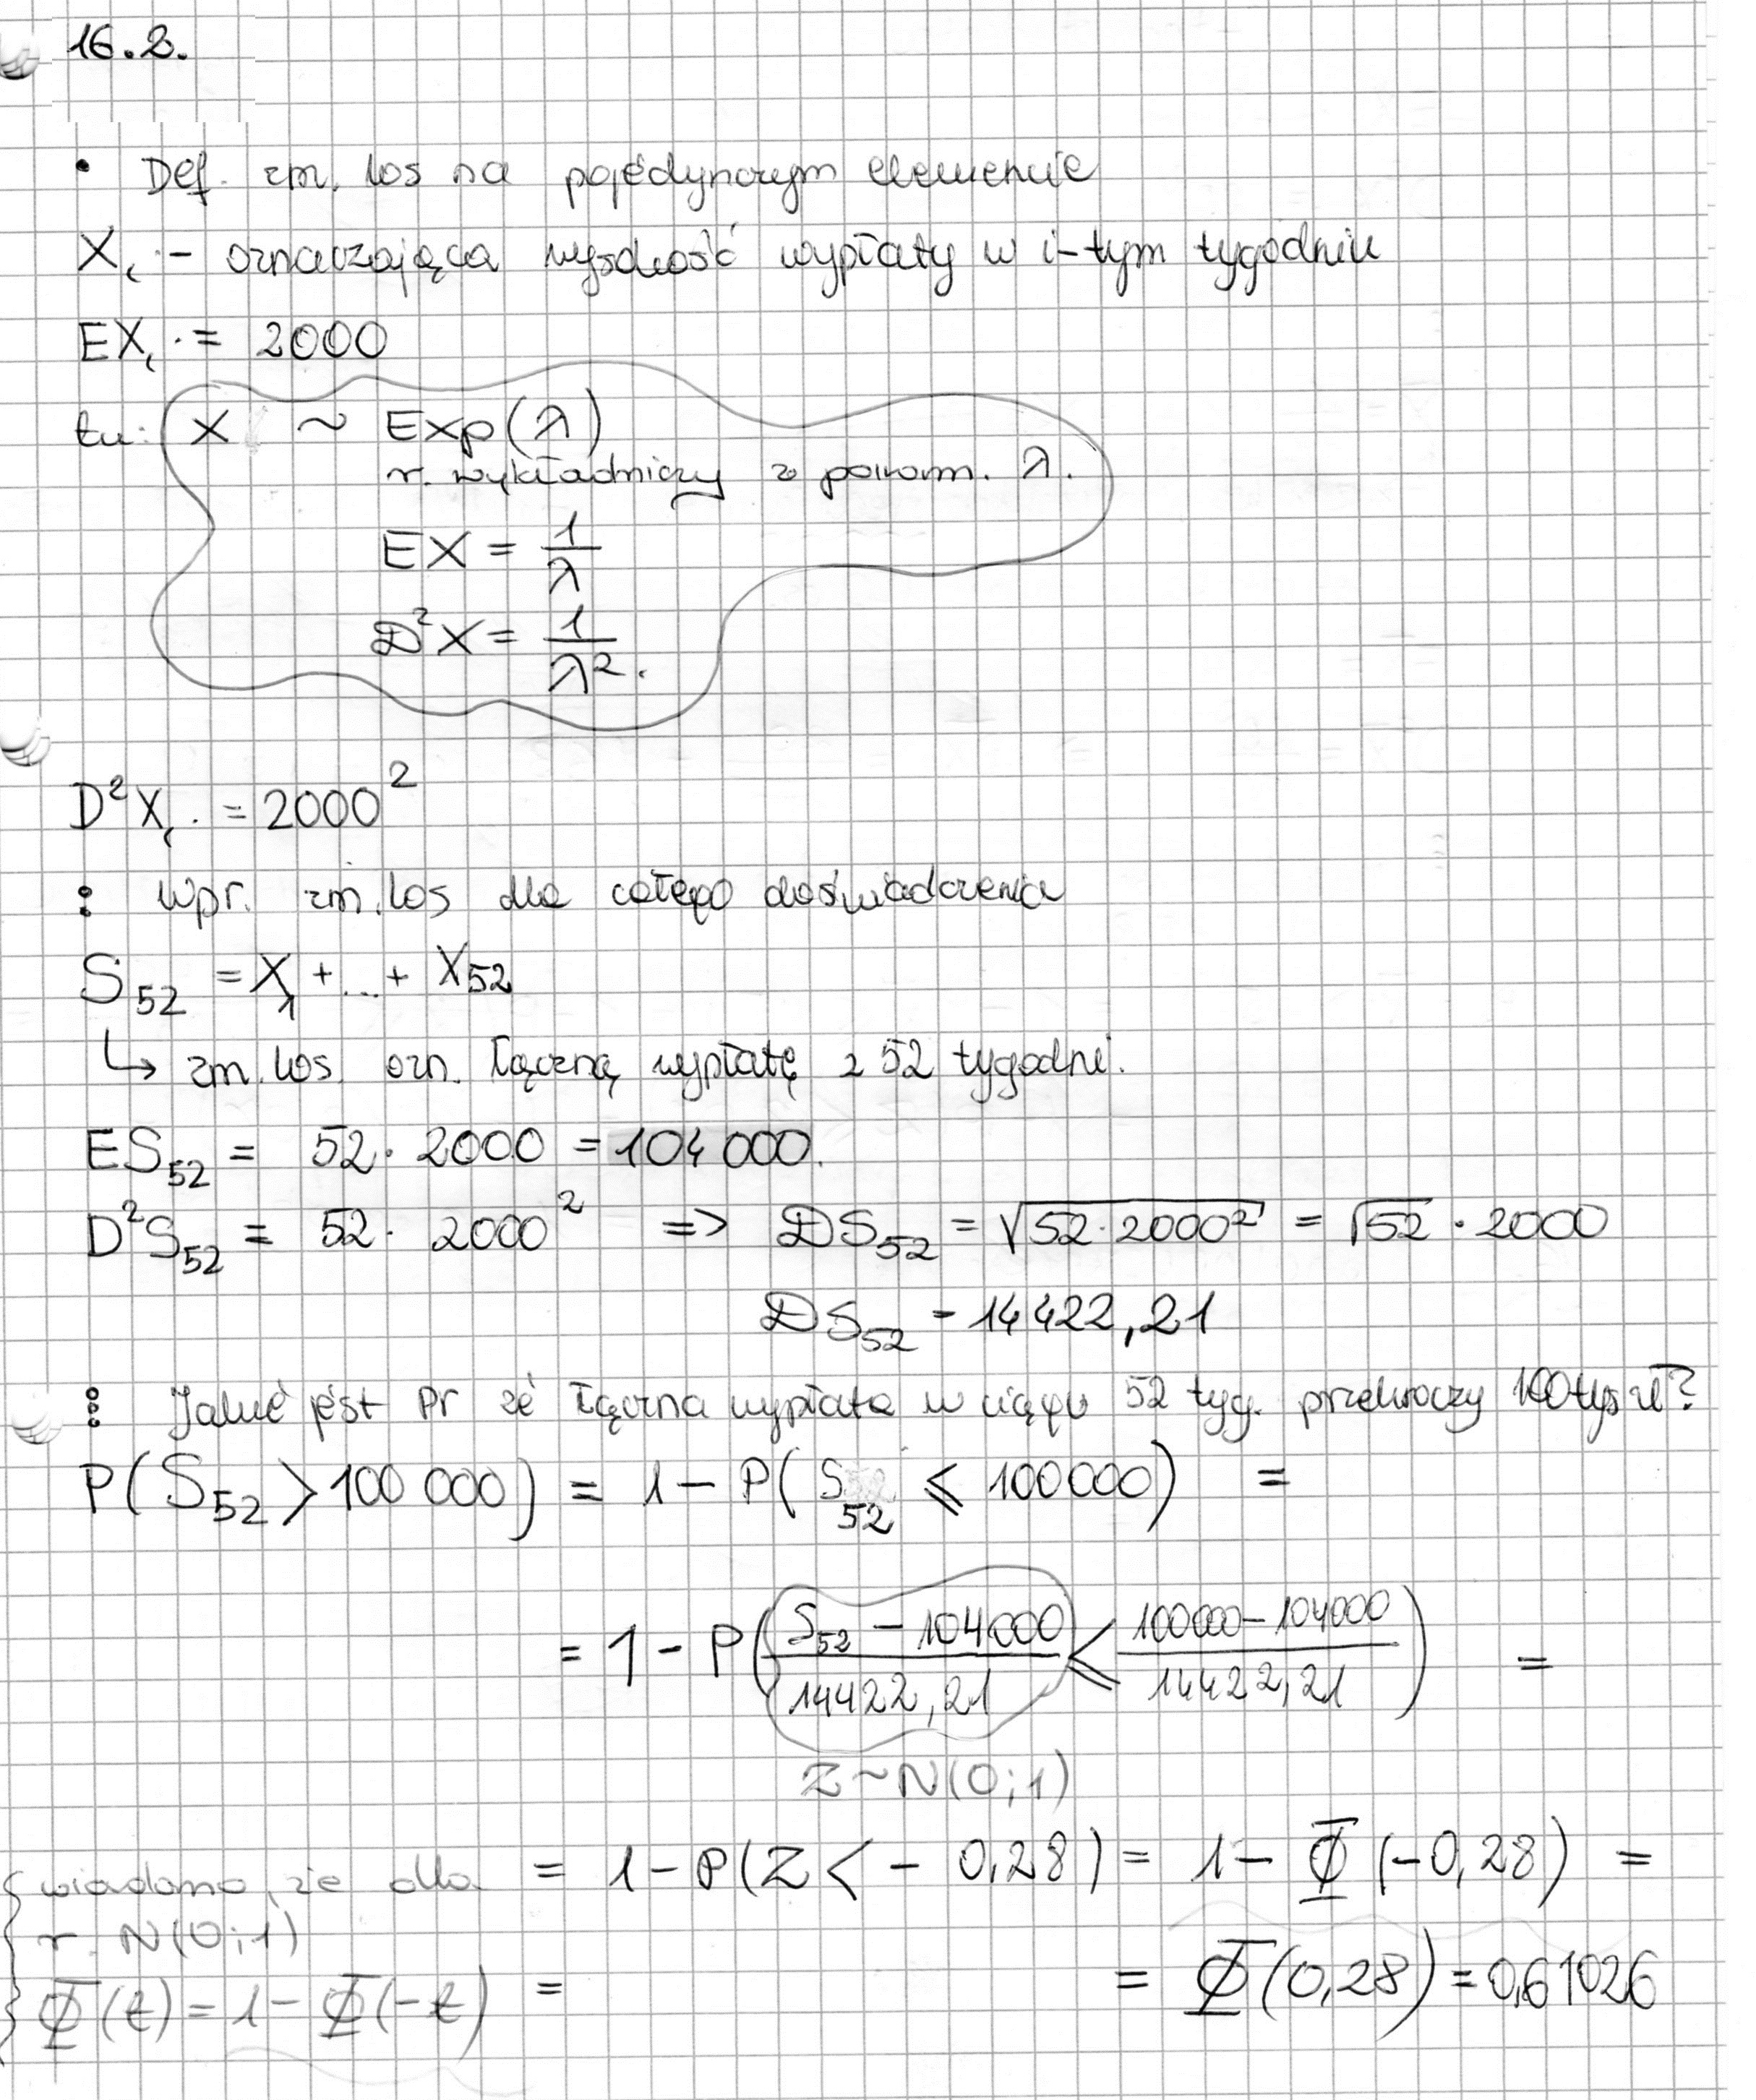 16.2.
• Def. zm. los na pojedynczym elemencie
Xi - oznaczająca wysokość wypłaty w i-tym tygodniu
EXi = 2000
tu: X ~ Exp(λ)
r. wykładniczy z param. λ.
EX = 1/λ
D²X = 1/λ².
D²Xi = 2000²
: wpr. zm. los dla całego doświadczenia
S52 = X1 + ... + X52
↳ zm. los. ozn. łączną wypłatę z 52 tygodni.
ES52 = 52 · 2000 = 104 000.
D²S52 = 52 · 2000² => DS52 = √(52·2000²) = √52 · 2000
DS52 = 14422,21
⋮ Jakie jest Pr że łączna wypłata w ciągu 52 tyg. przekroczy 100 tys zł?
P(S52 > 100 000) = 1 - P(S52 ≤ 100000) =
= 1 - P((S52 - 104000)/14422,21 ≤ (100000 - 104000)/14422,21) =
Z ~ N(0;1)
= 1 - P(Z < - 0,28) = 1 - Φ(-0,28) =
wiadomo, że dla
r. N(0;1)
Φ(t) = 1 - Φ(-t) =
= Φ(0,28) = 0,61026